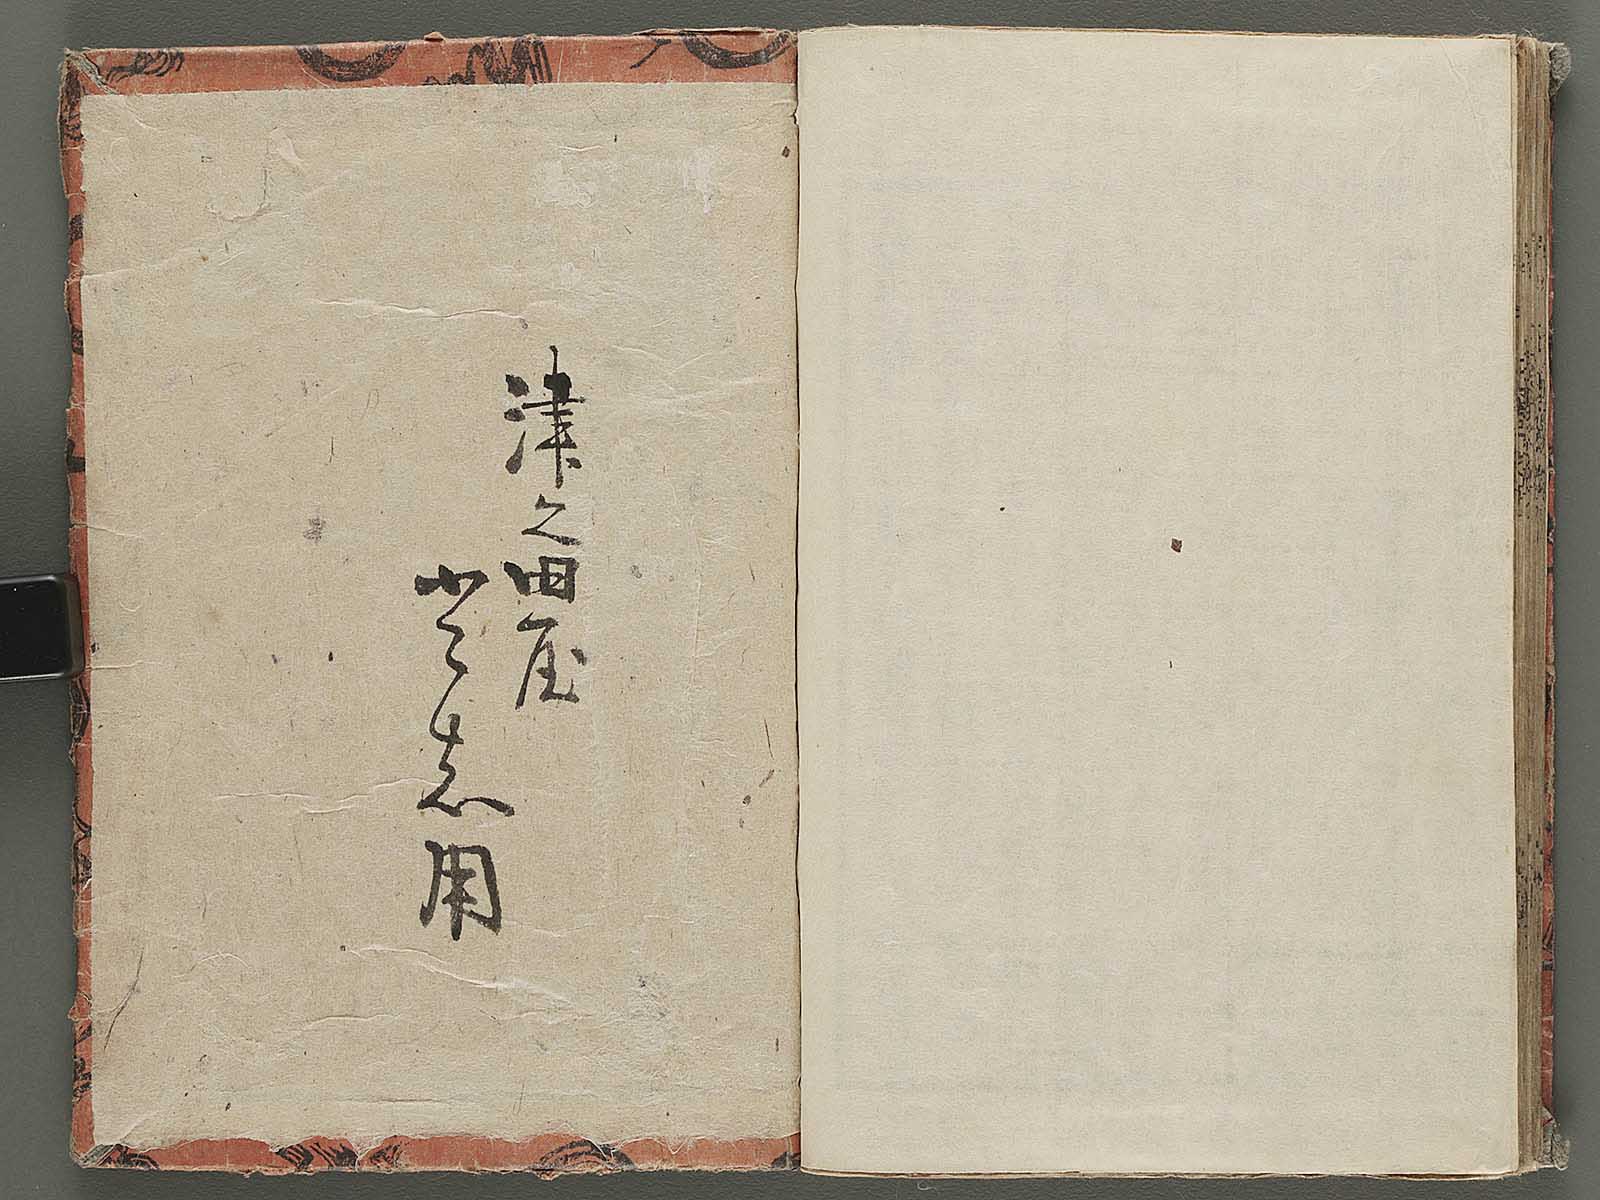 津之田屋
志用